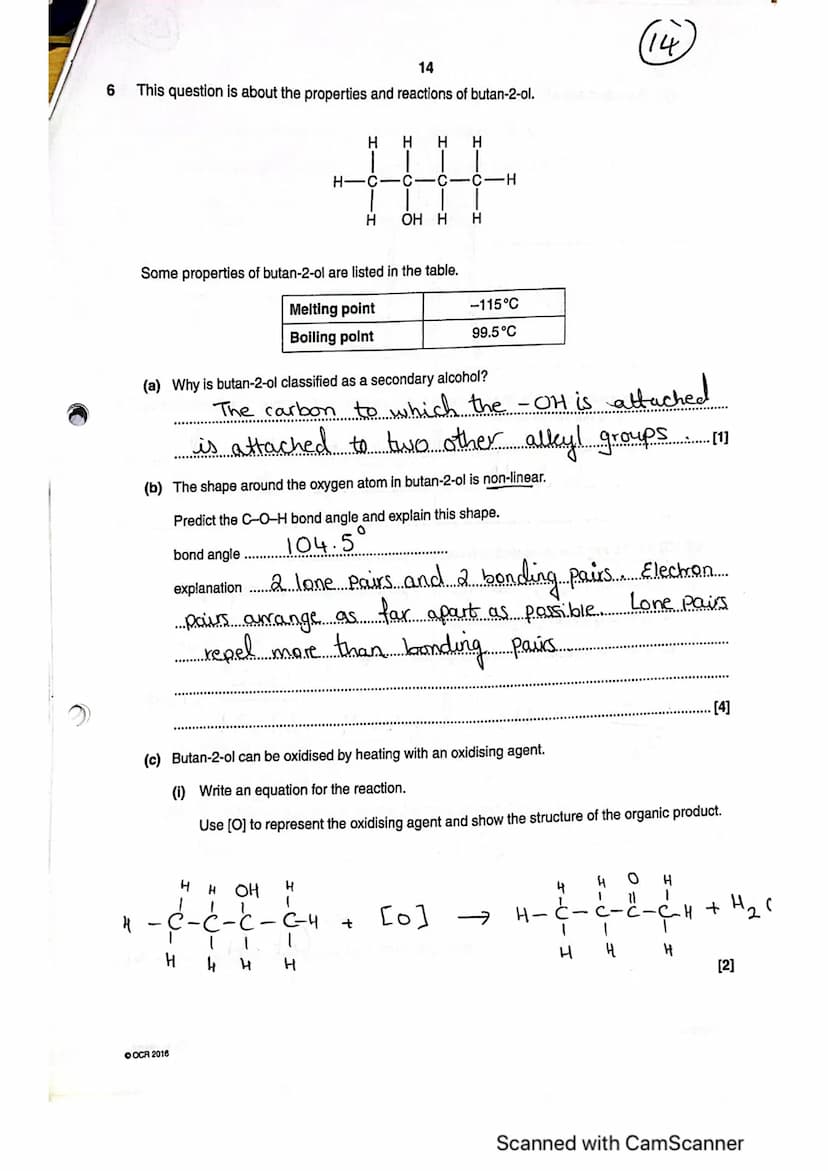 14
14
6 This question is about the properties and reactions of butan-2-ol.
H H H H
H—C—C—C—C—H
H OH H H
Some properties of butan-2-ol are listed in the table.
Melting point –115°C
Boiling point 99.5°C
(a) Why is butan-2-ol classified as a secondary alcohol?
The carbon to which the -OH is attached
is attached to two other alkyl groups. [1]
(b) The shape around the oxygen atom in butan-2-ol is non-linear.
Predict the C–O–H bond angle and explain this shape.
bond angle 104.5°
explanation 2 lone pairs and 2 bonding pairs. Electron
pairs arrange as far apart as possible. Lone pairs
repel more than bonding pairs
[4]
(c) Butan-2-ol can be oxidised by heating with an oxidising agent.
(i) Write an equation for the reaction.
Use [O] to represent the oxidising agent and show the structure of the organic product.
H H OH H H H O H
H - C - C - C - C-H + [O] → H - C - C - C - C-H + H2O
H H H H H H H
[2]
© OCR 2016
Scanned with CamScanner